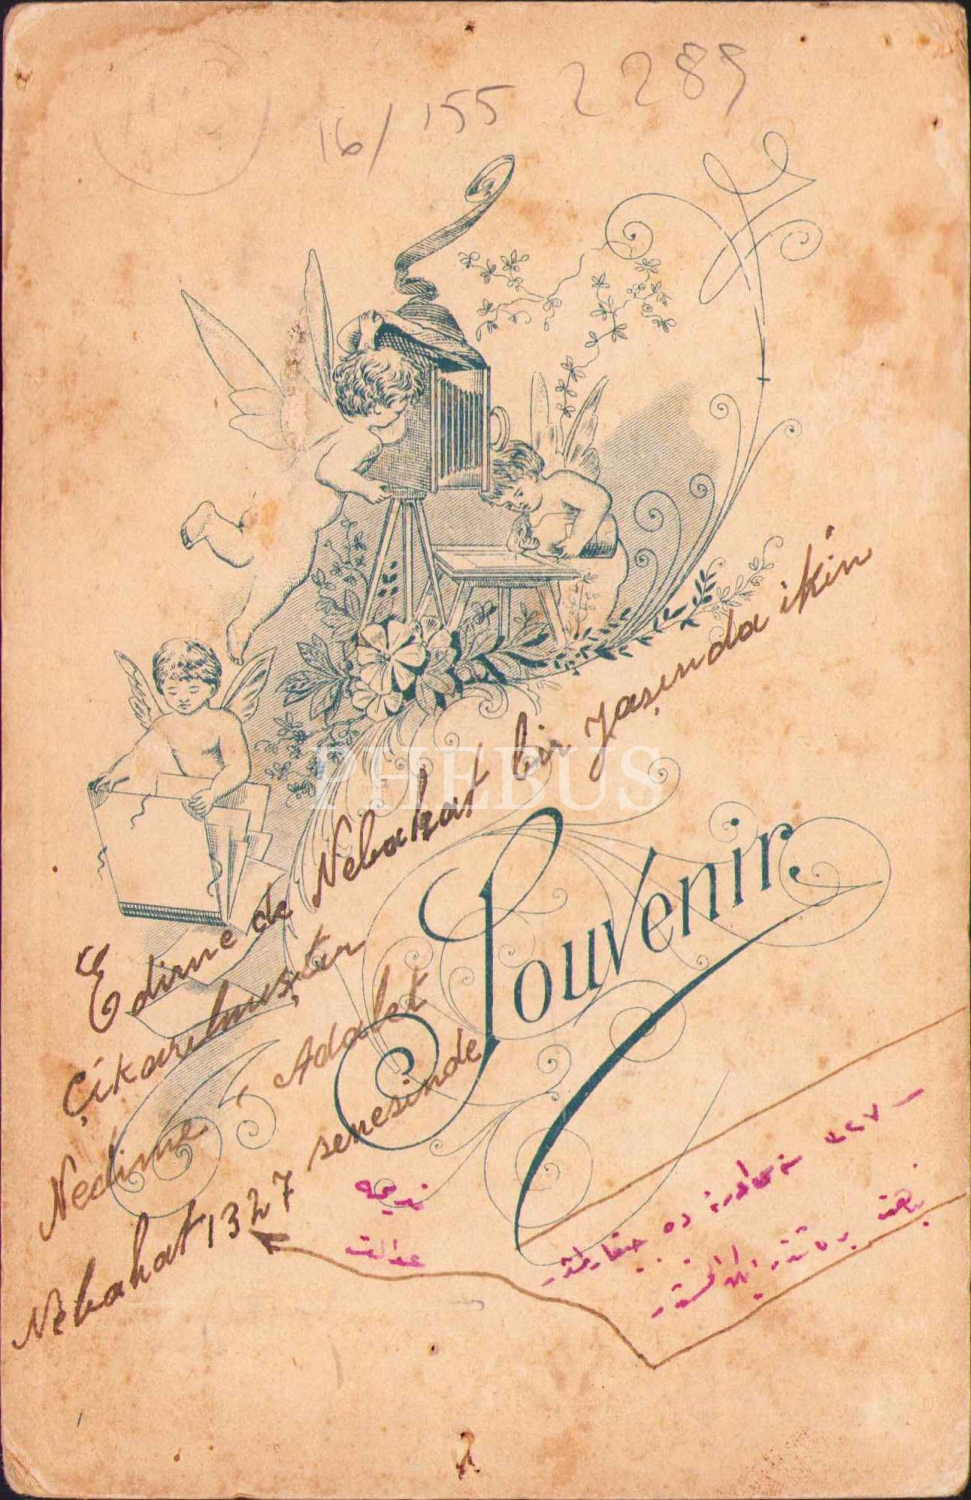 16/155 2289
PHEBUS
Souvenir.
Edirne de Nebahat bir yaşında ikin
Çikarılmıştır
Nedime, Adalet
Nebahat 1327 senesinde
نديمه
عدالت